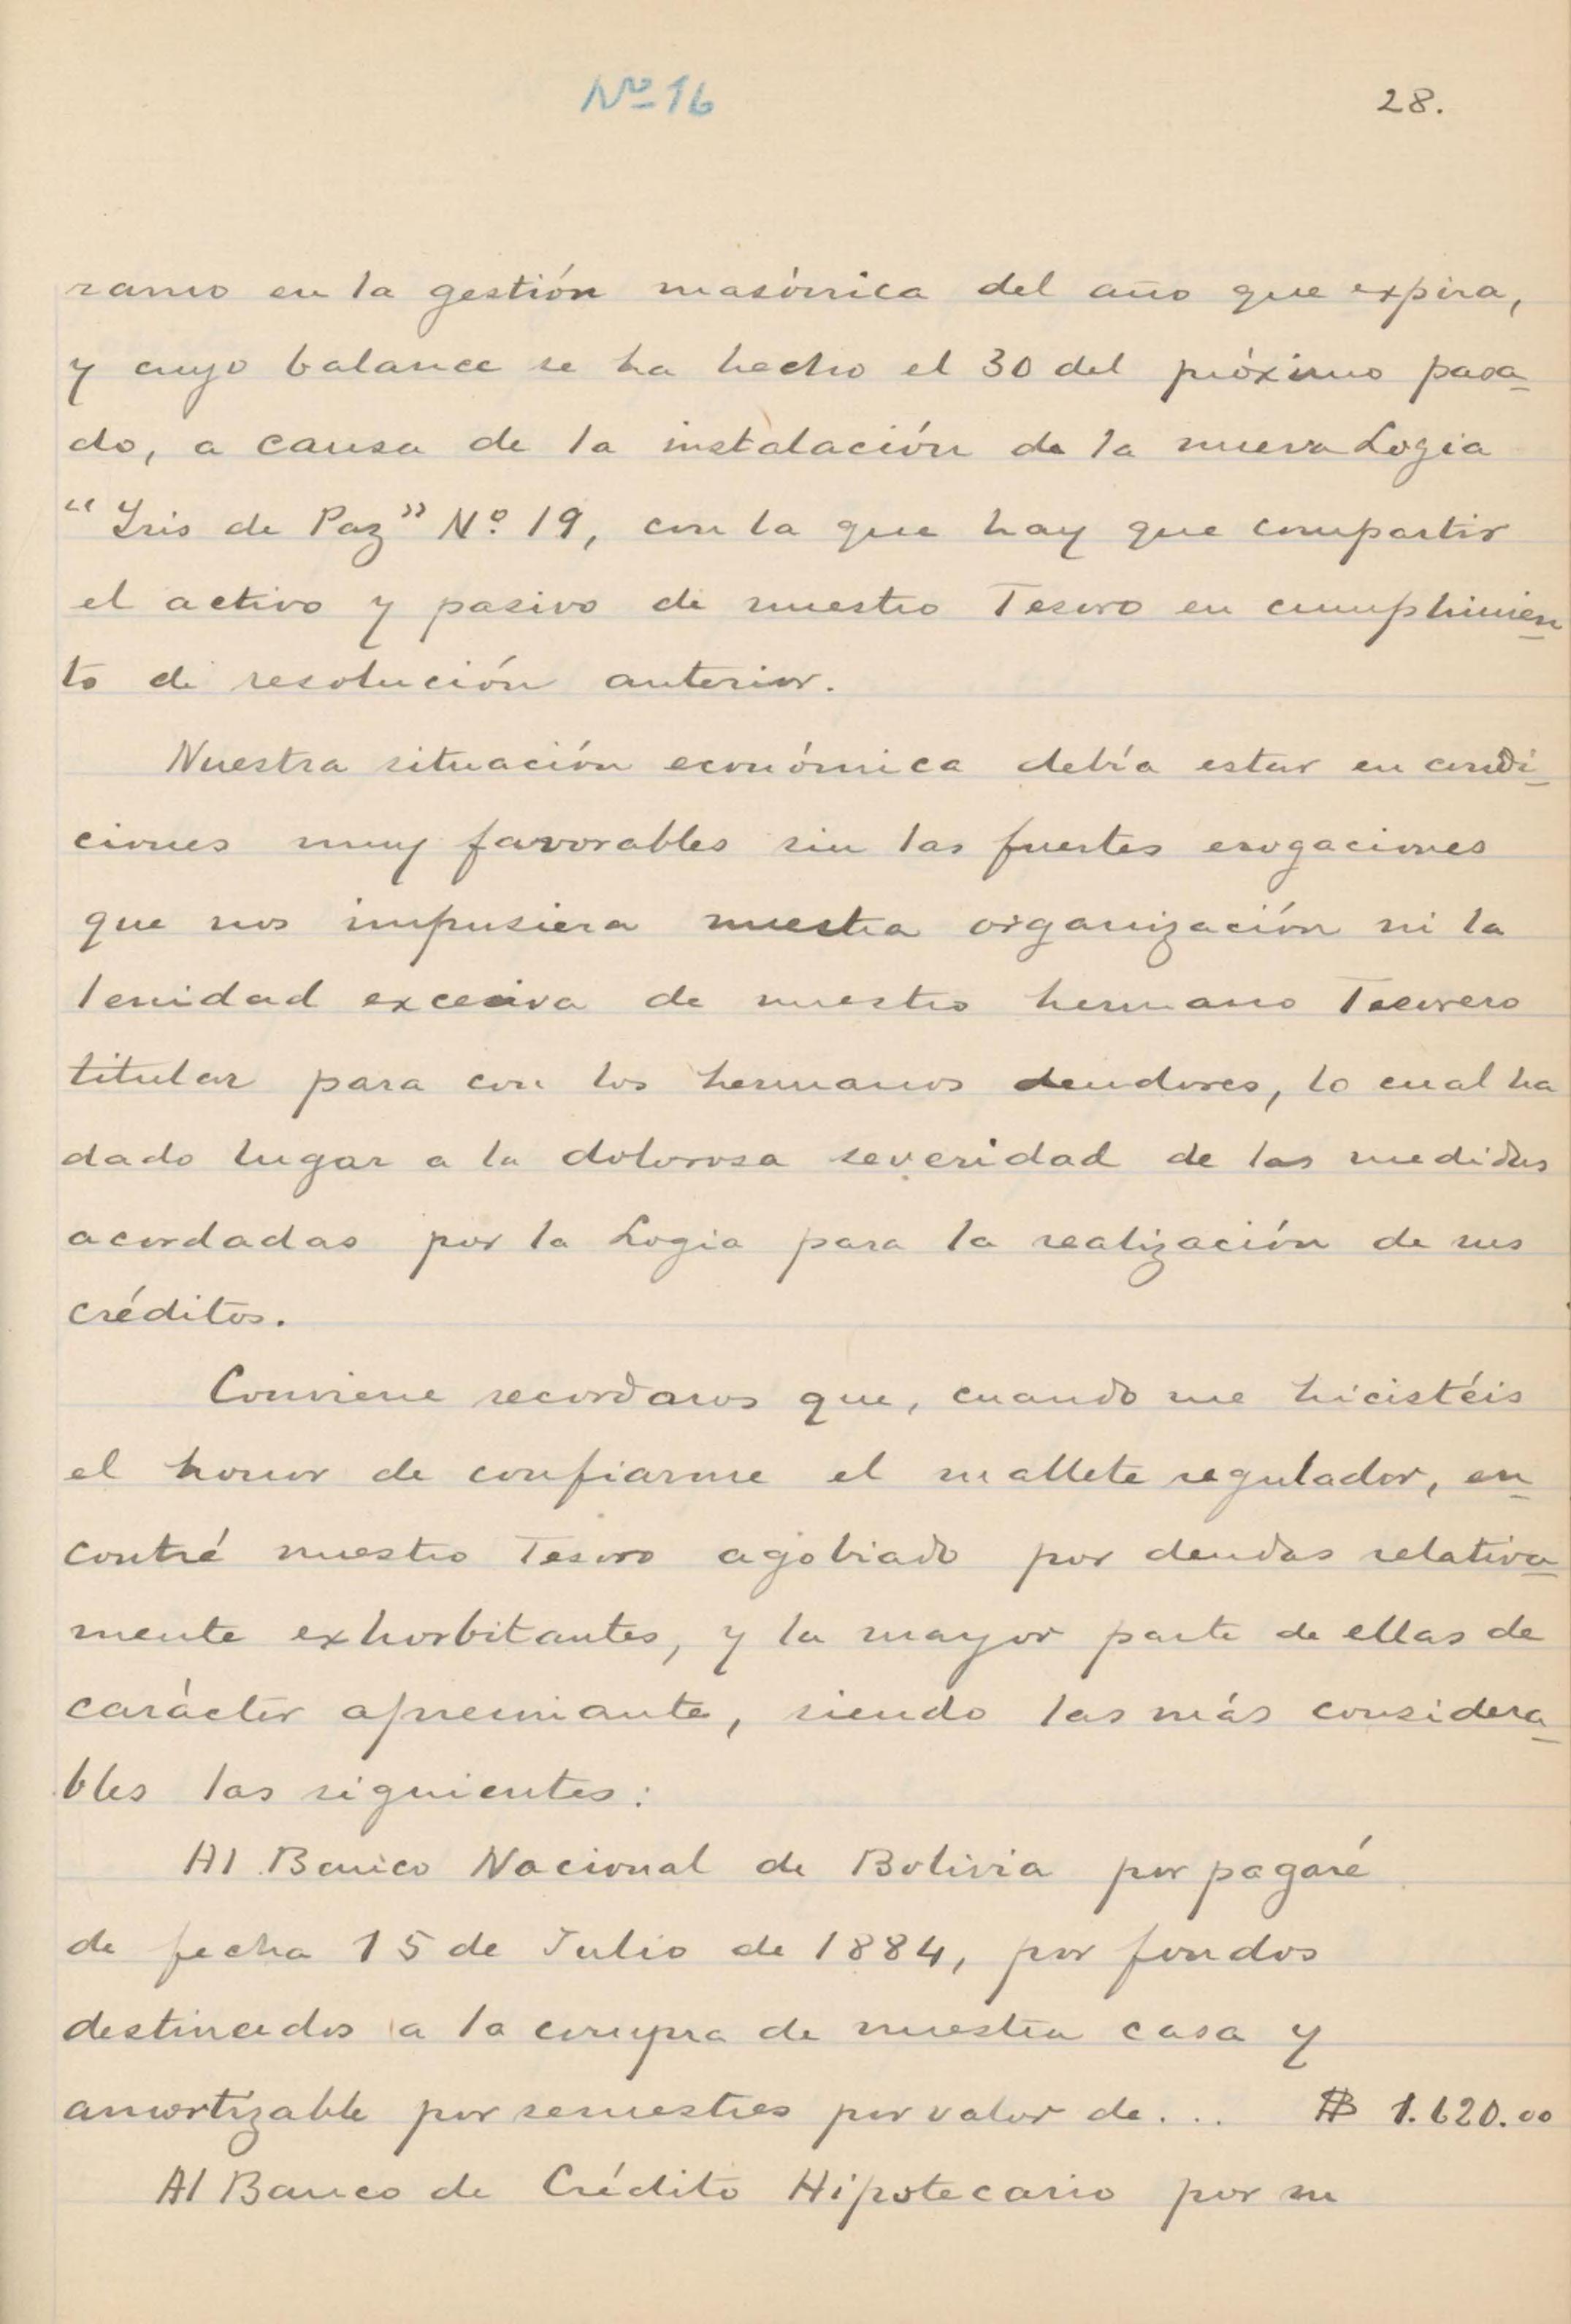 Nº 16
28.
ramo en la gestión masónica del año que expira,
y cuyo balance se ha hecho el 30 del próximo pasa-
do, a causa de la instalación de la nueva Logia
"Iris de Paz" Nº 19, con la que hay que compartir
el activo y pasivo de nuestro Tesoro en cumplimien-
to de resolución anterior.
Nuestra situación económica debía estar en condi-
ciones muy favorables sin las fuertes erogaciones
que nos impusiera nuestra organización ni la
lenidad excesiva de nuestro hermano Tesorero
titular para con los hermanos deudores, lo cual ha
dado lugar a la dolorosa severidad de las medidas
acordadas por la Logia para la realización de sus
créditos.
Conviene recordaros que, cuando me hicistéis
el honor de confiarme el mallete regulador, en-
contré nuestro Tesoro agobiado por deudas relativa-
mente exhorbitantes, y la mayor parte de ellas de
carácter apremiante, siendo las más considera-
bles las siguientes:
Al Banco Nacional de Bolivia por pagaré
de fecha 15 de Julio de 1884, por fondos
destinados a la compra de nuestra casa y
amortizable por semestres por valor de... $ 1.620.00
Al Banco de Crédito Hipotecario por su